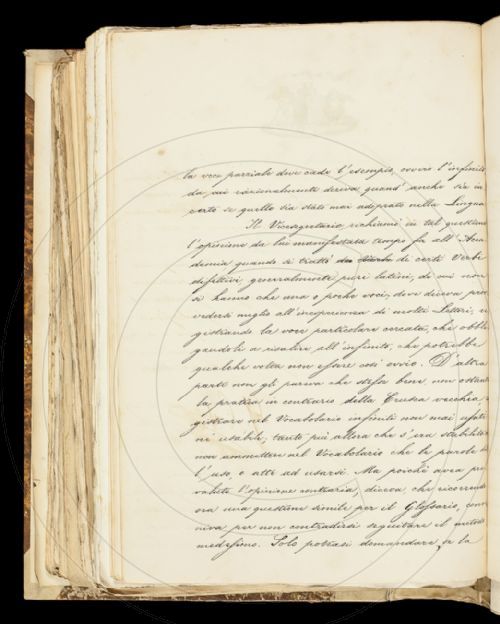 la voce parziale deve cade l'esempio, ovvero l'infinito
da cui razionalmente deriva quand' anche sia in
certo se quello sia stato mai adoprato nella Lingua
Il Vicesegretario richiamò in tal questione
l'opinione da lui manifestata tempo fa all' Acca
demia quando si trattò di certi Verbi
difettivi, generalmente puri latini, di cui non
si hanno che una o poche voci, dove diceva prov
vedersi meglio all'inesperienza di molti Lettori, re
gistrando la voce particolare cercata, che obbli
gandoli a risalire all' infinito, che potrebbe
qualche volta non essere così ovvio. D'altra
parte non gli pareva che stesse bene, non ostante
la pratica in contrario della Crusca vecchia, re
gistrare nel Vocabolario infiniti non mai usati
nè usabili, tanto più allora che s'era stabilito
non ammettere nel Vocabolario che le parole
l'uso, o atte ad usarsi. Ma poichè avea pre
valuto l'opinione contraria, diceva che ricorrendo
ora una questione simile per il Glossario, conve
niva per non contradirsi seguitare il metodo
medesimo. Solo potrasi domandare, se la